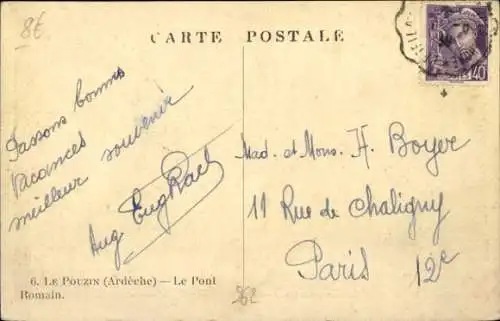 8€
CARTE POSTALE
40
Passons bonnes
vacances
meilleur souvenir
Mad. et Mons. H. Boyer
11 Rue de Chaligny
Paris 12e
6. LE POUZIN (Ardèche) — Le Pont
Romain.